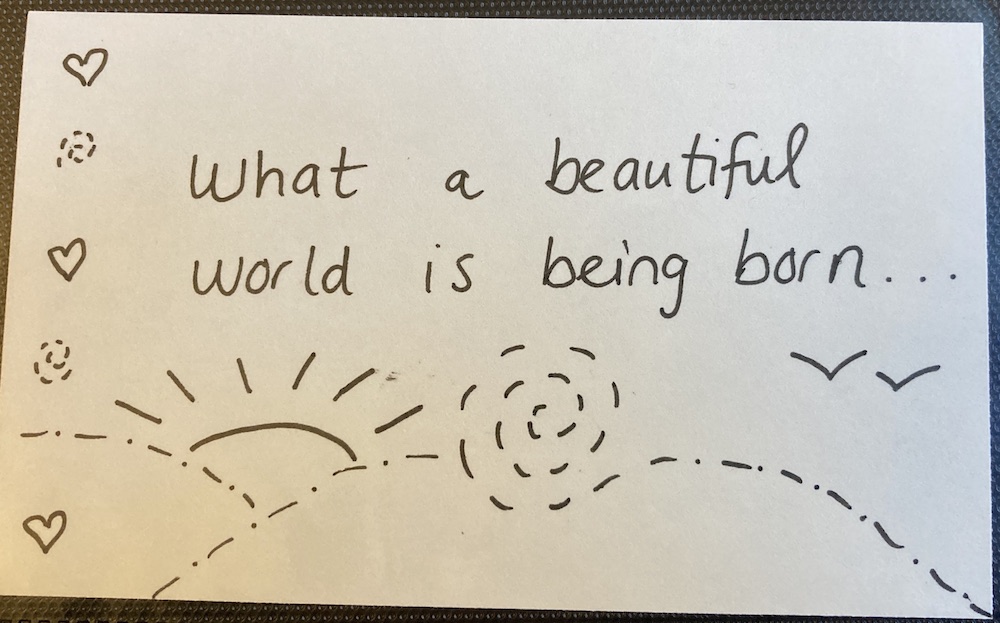 What a beautiful
world is being born...